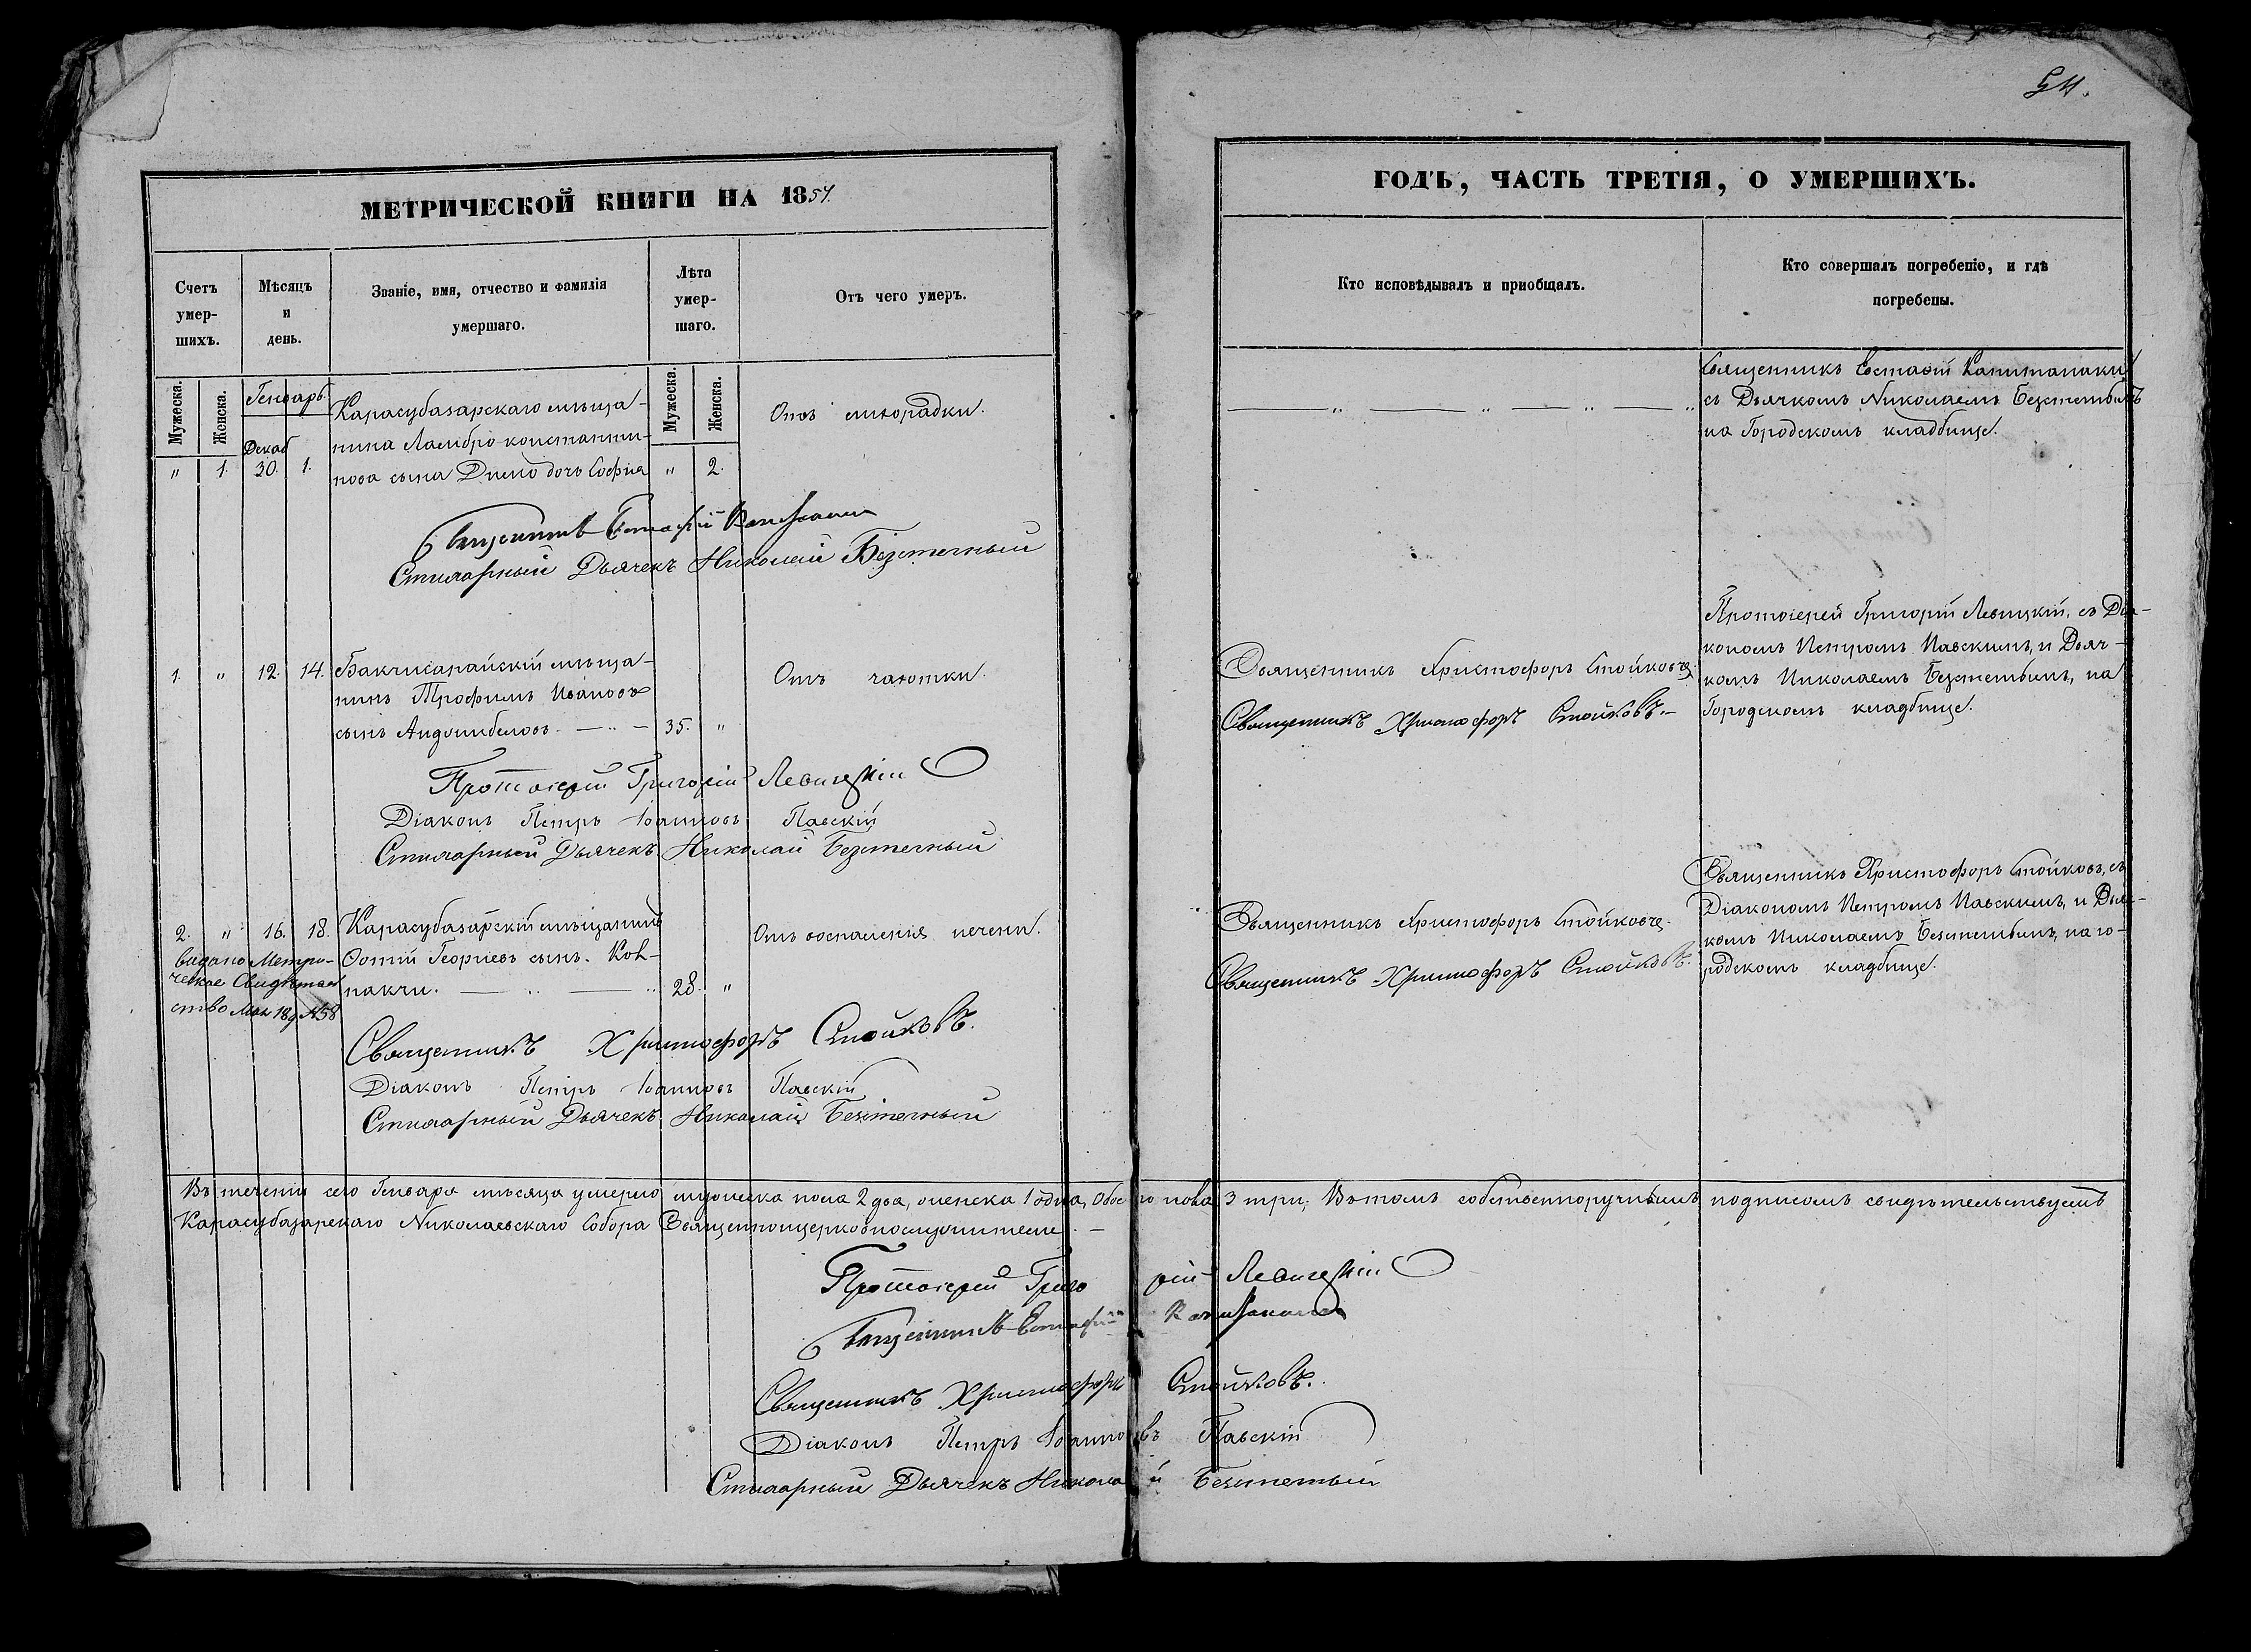 54.
МЕТРИЧЕСКОЙ КНИГИ НА 1854.
ГОДЪ, ЧАСТЬ ТРЕТІЯ, О УМЕРШИХЪ.
Счетъ
умер-
шихъ.
Мѣсяцъ
и
день.
Званіе, имя, отчество и фамилія
умершаго.
Лѣта
умер-
шаго.
Отъ чего умеръ.
Кто исповѣдывалъ и пріобщалъ.
Кто совершалъ погребеніе, и гдѣ
погребены.
Мужеска.
Женска.
Генварь.
Декаб
Мужеска.
Женска.
" 1. 30. 1.
Карасубазарскаго мѣща-
нина Ламбро Константи-
нова сына Димо дочь Софиа " 2.
Отъ лихорадки.
Священникъ Евстафій Капитанаки
съ Дьячкомъ Николаемъ Безметнымъ
на Городскомъ кладбищѣ.
Священникъ Евстафій
Стихарный Дьячекъ Николай
1. " 12. 14.
Бакчисарайскій мѣща-
нинъ Трофимъ Ивановъ
сынъ 35. "
Отъ чахотки.
Священникъ Христофоръ Стойковъ.
Священникъ Христофоръ Стойковъ.
Протоіерей Григорій Левицкій, съ Діа-
кономъ Петромъ Павскимъ, и Дьяч-
комъ Николаемъ на
Городскомъ кладбищѣ.
Протоіерей Григорій Левицкій
Діаконъ Петръ Іоанновъ Павскій
Стихарный Дьячекъ Николай
2. " 16. 18.
Карасубазарскій мѣщанинъ
Фотій Георгіевъ сынъ
28. "
Отъ воспаленія печени.
выдано Метри-
ческое Свидѣтель
ство №58
Священникъ Христофоръ Стойковъ.
Священникъ Христофоръ Стойковъ.
Священникъ Христофоръ Стойковъ, съ
Діакономъ Петромъ Павскимъ, и Дьяч-
комъ Николаемъ на го-
родскомъ кладбищѣ.
Священникъ Христофоръ Стойковъ.
Діаконъ Петръ Іоанновъ Павскій
Стихарный Дьячекъ Николай
Въ теченіи сего Генваря мѣсяца умерло мужеска пола 2 два, женска 1 одна, Обоего пола 3 три; Въ томъ собственноручнымъ подписомъ свидѣтельствуемъ
Карасубазарскаго Николаевскаго Собора Священноцерковнослужители
Протоіерей Григорій Левицкій
Священникъ Евстафій
Священникъ Христофоръ Стойковъ.
Діаконъ Петръ Іоанновъ Павскій
Стихарный Дьячекъ Николай